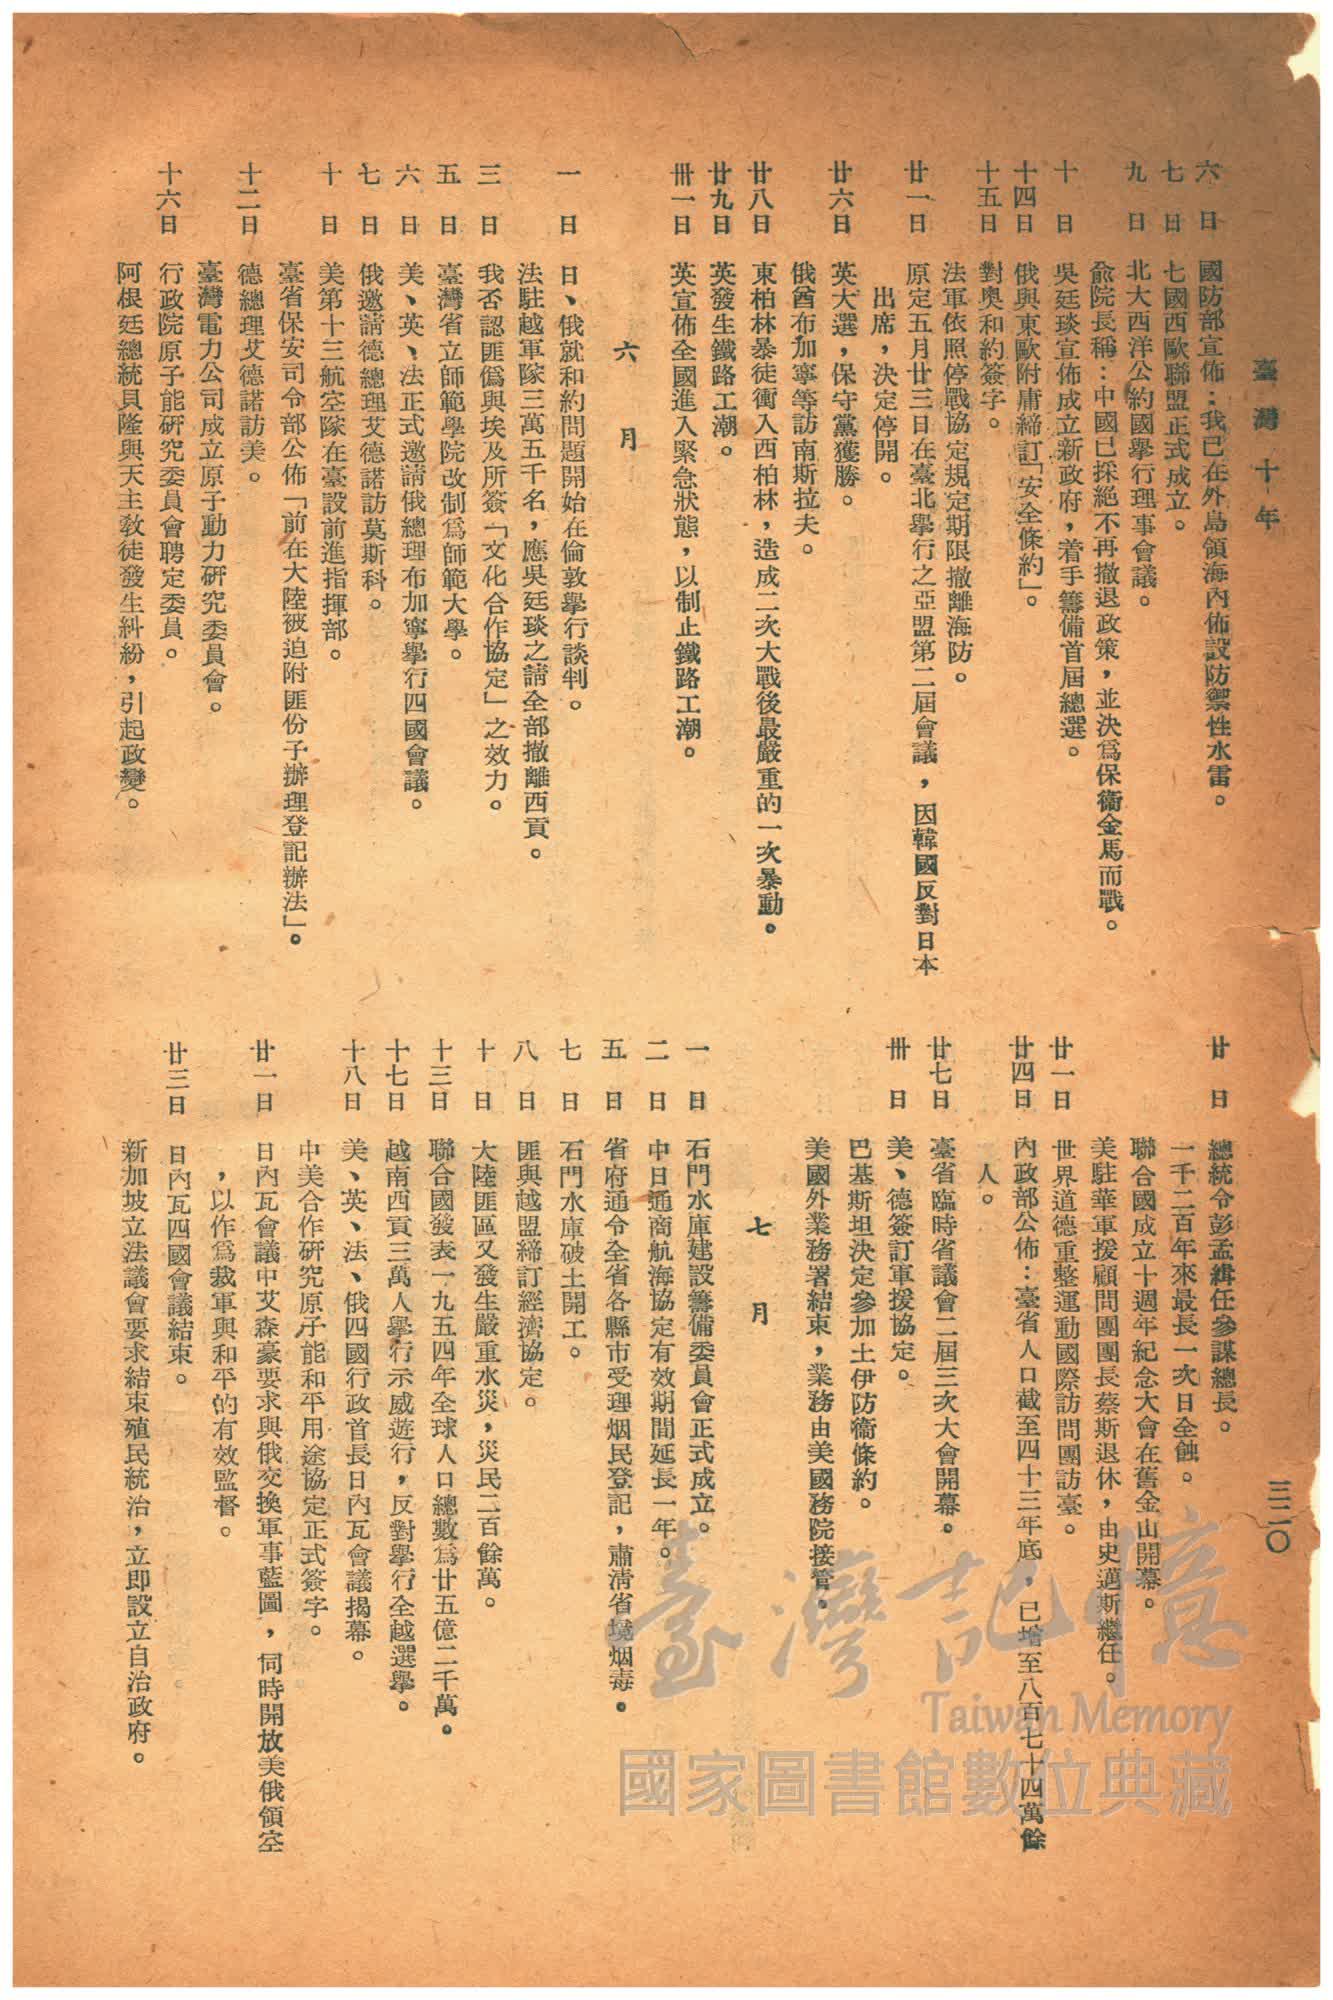 臺灣十年
三二〇
六日 國防部宣佈：我已在外島領海內佈設防禦性水雷。
七日 七國西歐聯盟正式成立。
九日 北大西洋公約國舉行理事會議。
俞院長稱：中國已採絕不再撤退政策，並決爲保衞金馬而戰。
十日 吳廷琰宣佈成立新政府，着手籌備首屆總選。
十四日 俄與東歐附庸締訂「安全條約」。
十五日 對奧和約簽字。
法軍依照停戰協定規定期限撤離海防。
廿一日 原定五月廿三日在臺北舉行之亞盟第二屆會議，因韓國反對日本
出席，決定停開。
廿六日 英大選，保守黨獲勝。
俄酋布加寧等訪南斯拉夫。
廿八日 東柏林暴徒衝入西柏林，造成二次大戰後最嚴重的一次暴動。
廿九日 英發生鐵路工潮。
卅一日 英宣佈全國進入緊急狀態，以制止鐵路工潮。
六月
一日 日、俄就和約問題開始在倫敦舉行談判。
法駐越軍隊三萬五千名，應吳廷琰之請全部撤離西貢。
三日 我否認匪僞與埃及所簽「文化合作協定」之效力。
五日 臺灣省立師範學院改制爲師範大學。
六日 美、英、法正式邀請俄總理布加寧舉行四國會議。
七日 俄邀請德總理艾德諾訪莫斯科。
十日 美第十三航空隊在臺設前進指揮部。
臺省保安司令部公佈「前在大陸被迫附匪份子辦理登記辦法」。
十二日 德總理艾德諾訪美。
臺灣電力公司成立原子動力研究委員會。
十六日 行政院原子能研究委員會聘定委員。
阿根廷總統貝隆與天主教徒發生糾紛，引起政變。
廿日 總統令彭孟緝任參謀總長。
一千二百年來最長一次日全蝕。
聯合國成立十週年紀念大會在舊金山開幕。
美駐華軍援顧問團團長蔡斯退休，由史邁斯繼任。
廿一日 世界道德重整運動國際訪問團訪臺。
廿四日 內政部公佈：臺省人口截至四十三年底，已增至八百七十四萬餘
人。
廿七日 臺省臨時省議會二屆三次大會開幕。
卅日 美、德簽訂軍援協定。
巴基斯坦決定參加土伊防衞條約。
美國外業務署結束，業務由美國務院接管。
七月
一日 石門水庫建設籌備委員會正式成立。
二日 中日通商航海協定有效期間延長一年。
五日 省府通令全省各縣市受理烟民登記，肅清省境烟毒。
七日 石門水庫破土開工。
八日 匪與越盟締訂經濟協定。
十日 大陸匪區又發生嚴重水災，災民二百餘萬。
十三日 聯合國發表一九五四年全球人口總數爲廿五億二千萬。
十七日 越南西貢三萬人舉行示威遊行，反對舉行全越選舉。
十八日 美、英、法、俄四國行政首長日內瓦會議揭幕。
中美合作研究原子能和平用途協定正式簽字。
廿一日 日內瓦會議中艾森豪要求與俄交換軍事藍圖，同時開放美俄領空
，以作爲裁軍與和平的有效監督。
廿三日 日內瓦四國會議結束。
新加坡立法議會要求結束殖民統治，立即設立自治政府。
臺灣記憶
Taiwan Memory
國家圖書館數位典藏